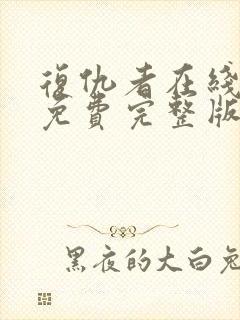 復仇者在綫
免費完整版
黑夜的大白兔